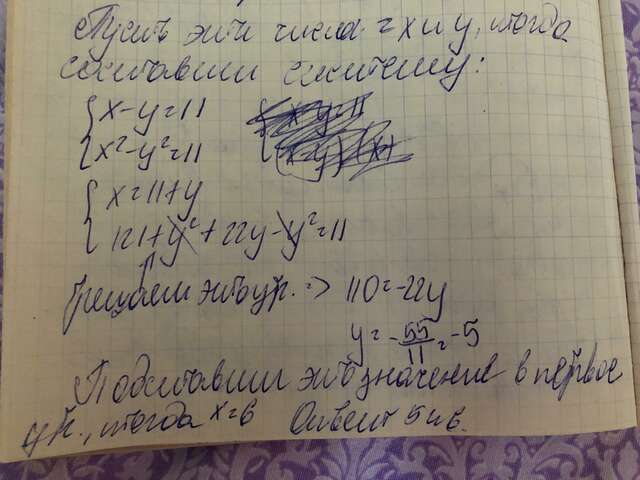 Пусть эти числа = x и y, тогда
составим систему:
{x-y=11
{x²-y²=11
{x=11+y
{121+y²+22y-y²=11
решаем это ур. => 110=-22y
y=-55/11=-5
Подставим это значение в первое
ур., тогда x=6 Ответ 5 и 6.